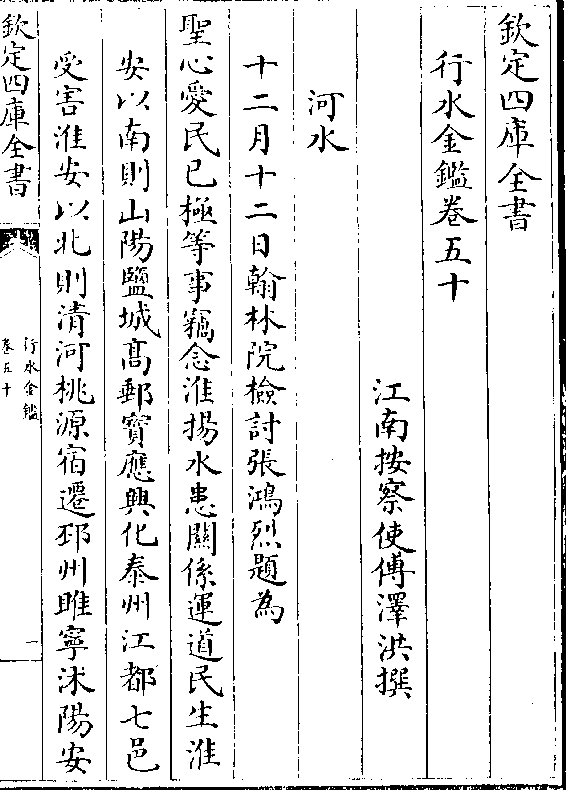 欽定四庫全書
行水金鑑卷五十
江南按察使傅澤洪撰
河水
十二月十二日翰林院檢討張鴻烈題為
聖心愛民已極等事竊念淮揚水患關係運道民生淮
安以南則山陽鹽城髙郵寶應興化泰州江都七邑
受害淮安以北則清河桃源宿遷邳州睢寧沭陽安
欽定四庫全書
行水金鑑
卷五十
一